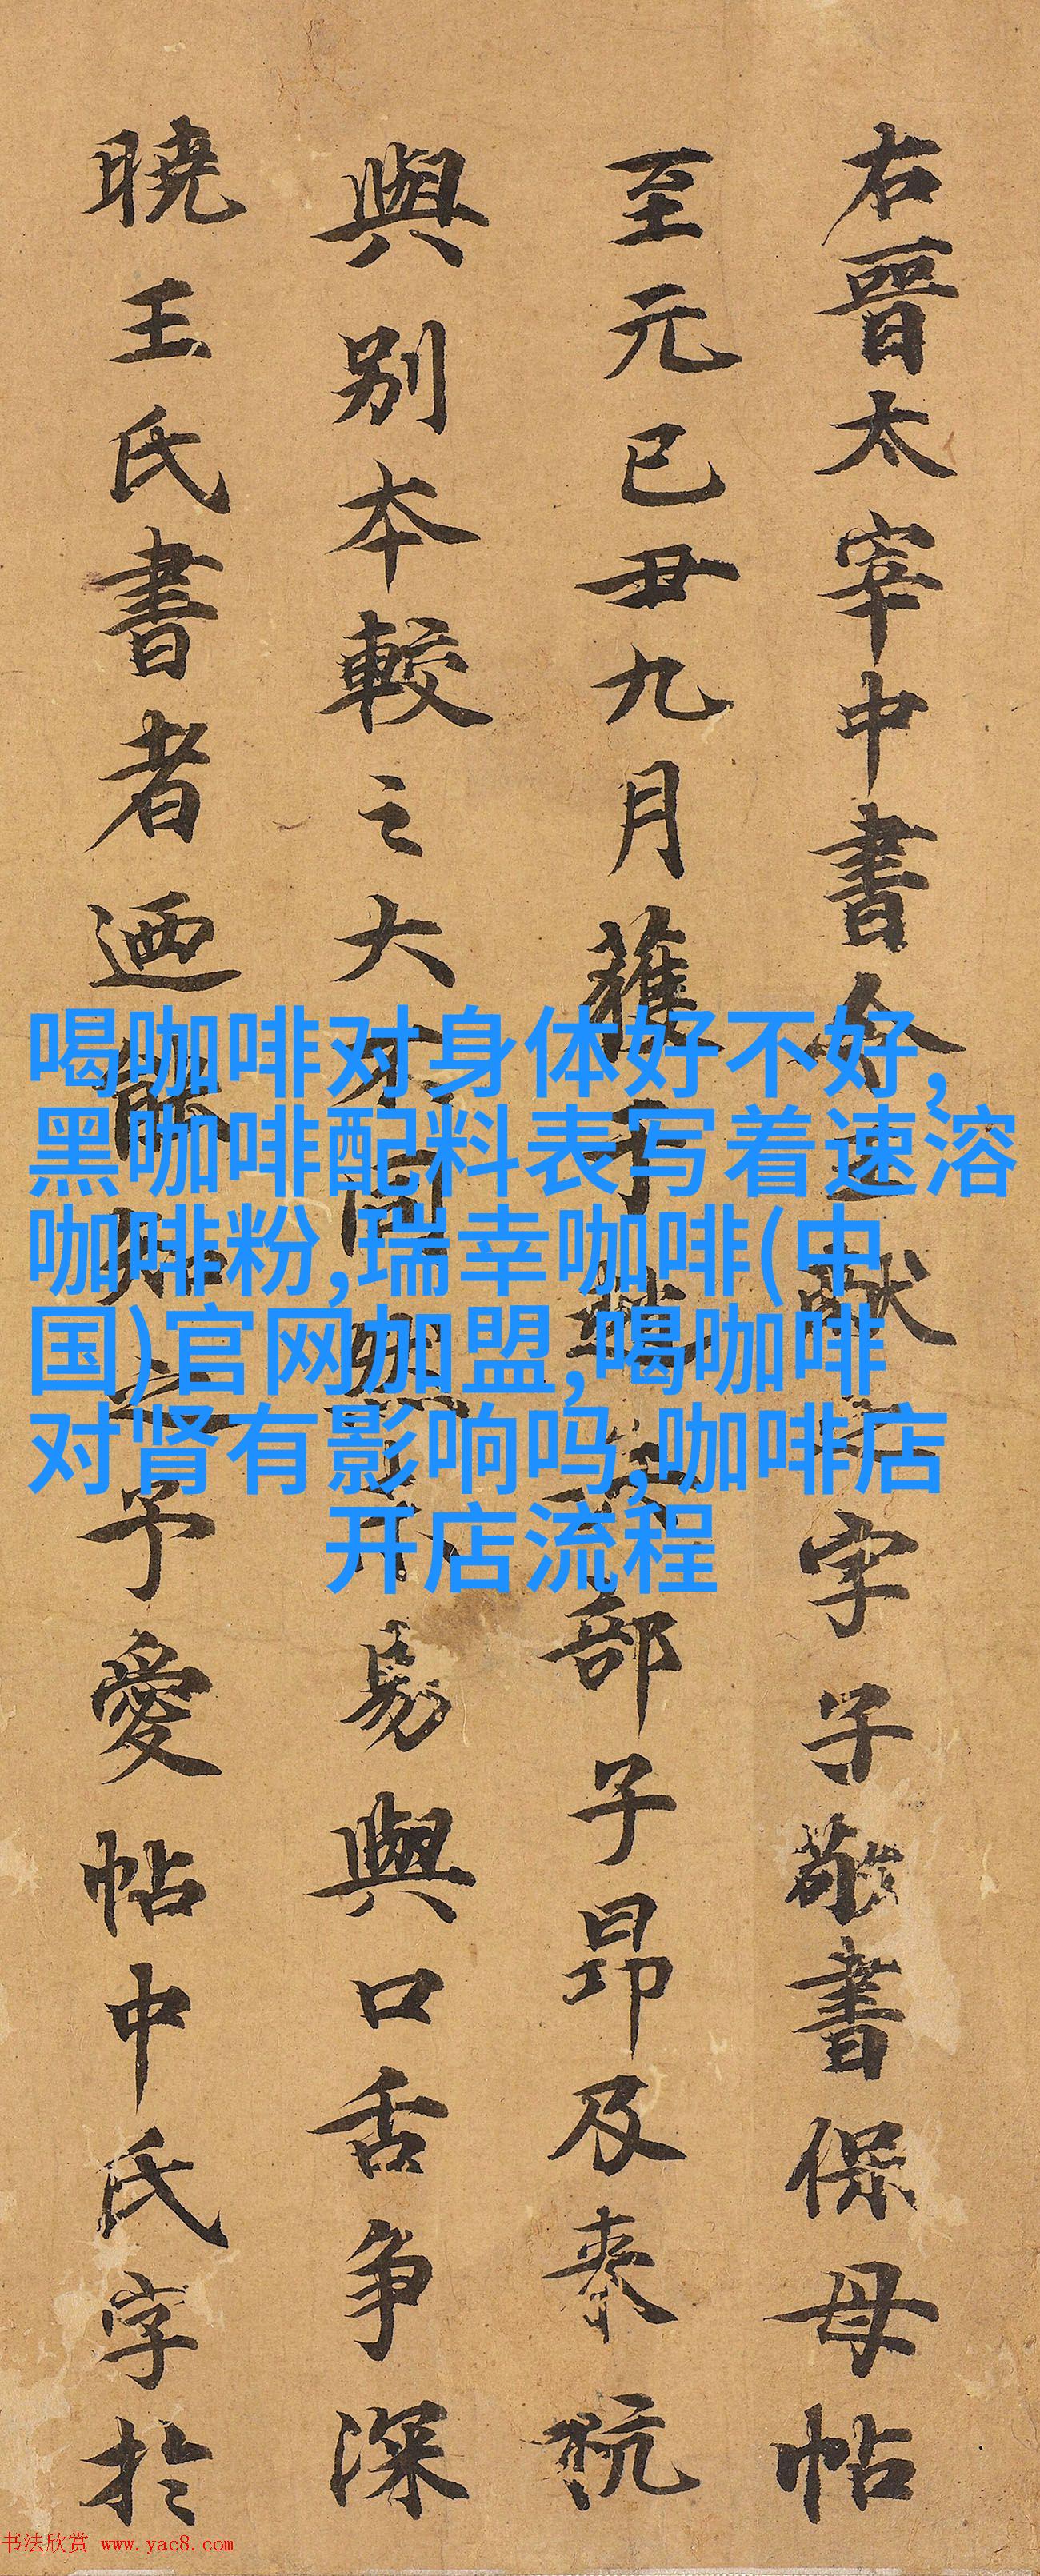 右晉太宰中書令王獻之字子敬書保母帖
至元已丑九月獲于趙部子昂及来杭
與别本較之大不同然未易與口舌争深
曉王氏書者迺能知之予愛帖中氏字於
喝咖啡对身体好不好,
黑咖啡配料表写着速溶
咖啡粉,瑞幸咖啡(中
国)官网加盟,喝咖啡
对肾有影响吗,咖啡店
开店流程
书法欣赏 www.yac8.com